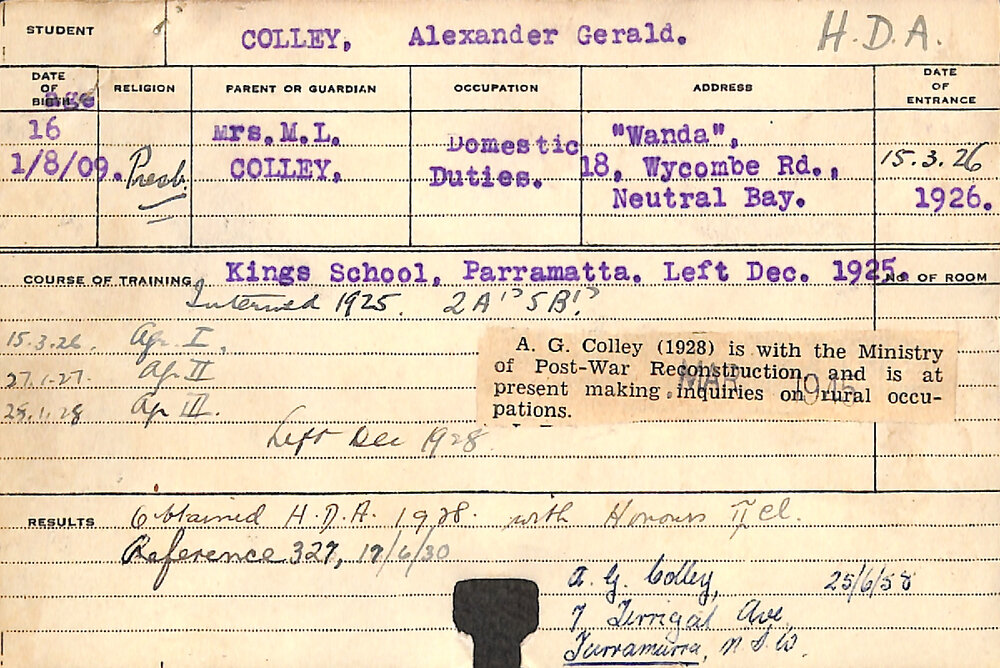 STUDENT COLLEY, Alexander Gerald. H.D.A.
DATE OF BIRTH RELIGION PARENT OR GUARDIAN OCCUPATION ADDRESS DATE OF ENTRANCE
age
16 Mrs. M. L. Domestic "Wanda",
1/8/09. Presb. COLLEY, Duties. 18, Wycombe Rd., 15.3.26
Neutral Bay. 1926.
COURSE OF TRAINING Kings School, Parramatta. Left Dec. 1925. NO OF ROOM
1925. 2A's 5B's
15.3.26. Ag. I.
27.1.27. Ag. II
A. G. Colley (1928) is with the Ministry
of Post-War Reconstruction, and is at
present making inquiries on rural occu-
pations.
MAR 1945
25.1.28 Ag III.
Left Dec 1928.
RESULTS Obtained H.D.A. 1928. with Honours II cl.
Reference 327, 17/6/30
A. G. Colley, 25/6/58
7 Terrigal Ave
Turramurra, N.S.W.